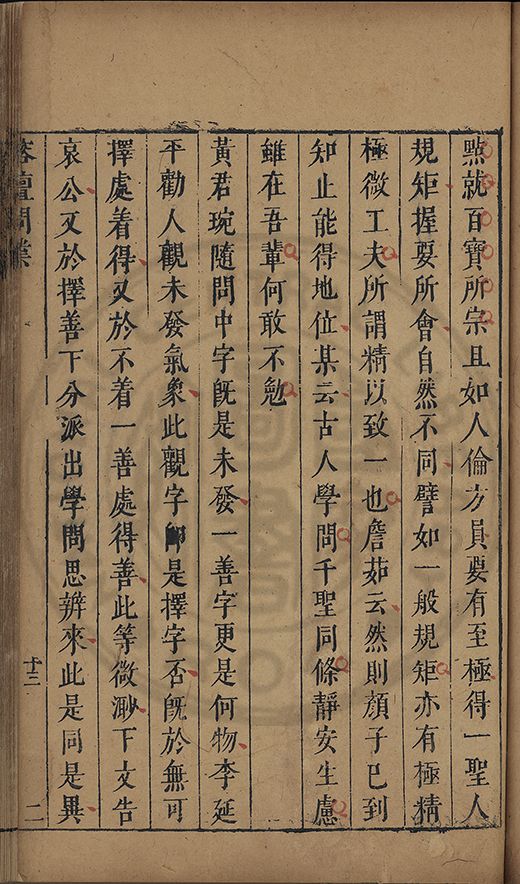 點就百寶所宗且如人倫方員要有至極得一聖人
規矩握要所會自然不同譬如一般規矩亦有極精
極微工夫所謂精以致一也詹茹云然則顏子已到
知止能得地位某云古人學問千聖同條靜安生慮
雖在吾輩何敢不勉
黃君琬隨問中字旣是未發一善字更是何物李延
平勸人觀未發氣象此觀字卽是擇字否旣於無可
擇處着得又於不着一善處得善此等微渺下文告
哀公又於擇善下分派出學問思辨來此是同是異
榕壇問業
十二
二